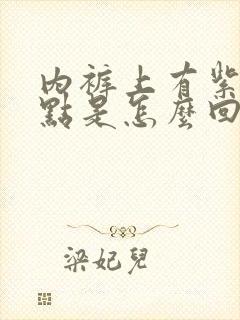 內裤上有紫
點是怎麼回
梁妃兒